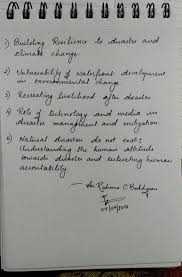 1) Building Resilience to disaster and
climate change
2) Vulnerability of waterfront development
in environmental change
3) Recreating livelihood after disaster
4) Role of technology and media in
disaster management and mitigation
5) Natural disasters do not exist:
Understanding the human attitude
towards disaster and enhancing human
accountability.